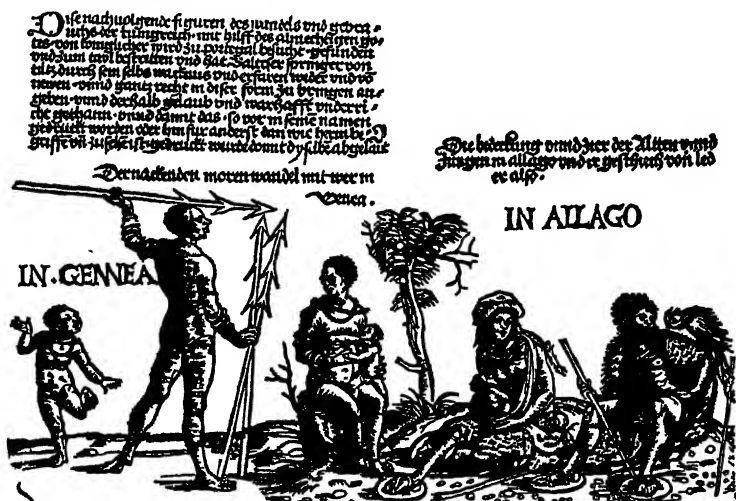 Dise nachvolgende figuren des wandels vnd gebreu
uchs der kunigreich mit hilff des almechtigen go
tes von kunglicher wird zu portegal besucht gefunden
vnd zum tayl bestritten vnd hat Baltheser springer von
vilz durch sein selbs vnd erfaren wider vnd vō
neuen vnnd gantz recht in diser form zu bringen an
geben vnnd derhalb gelaub vnd warhafft vnderri
che gethann vnnd damit das so vor in seine namen
gedruckt worden oder hin fur anderst dan wie hierin be
griffē vn̄ zusehē ist gedruckt wurde domit dyselbe abgelait
Der nackenden moren wandel mit wer in
Genea.
Die bedeckung vnnd zier der Alten vnnd
Jungen in allago vnd ir geschuch von led
er also.
IN ALLAGO
IN·GENNEA